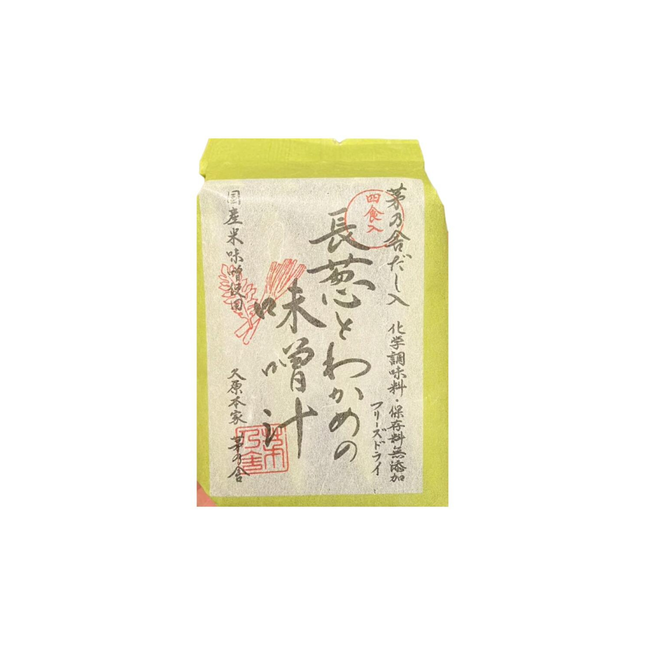 茅乃舎だし入
化学調味料・保存料無添加
フリーズドライ
四食入
長葱とわかめの
味噌汁
国産米味噌使用
久原本家 茅乃舎
茅乃舎